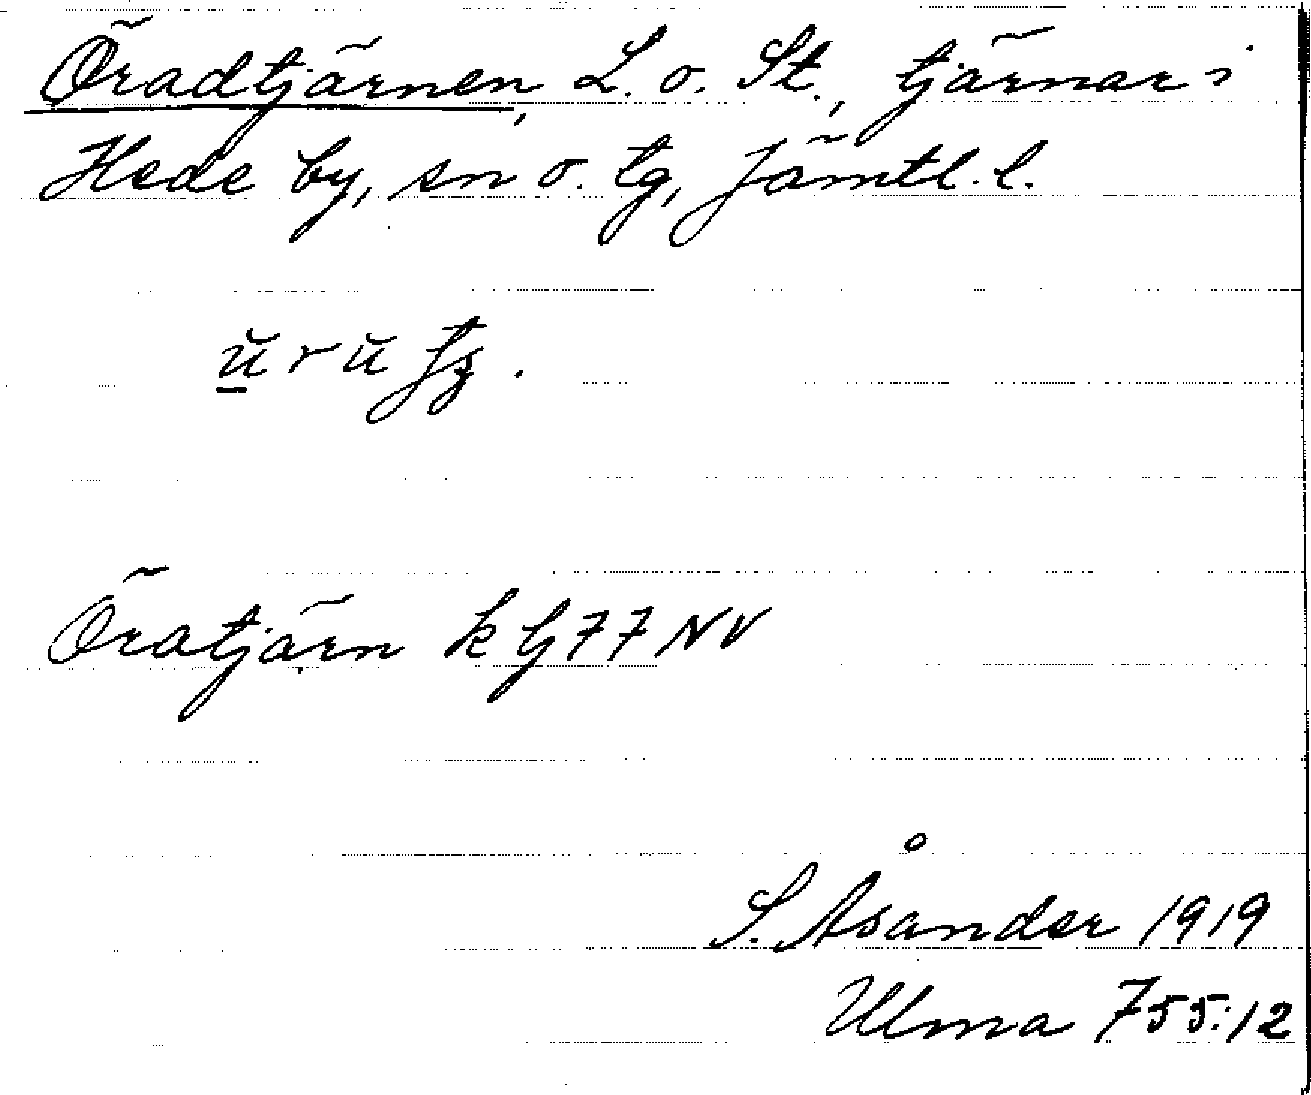 Öradtjärnen, L. o. St., tjärnar i
Hede by, sn o. tg, Jämtl. l.
Öratjärn k G 77 NV
S. Åsander 1919
Ulma 755:12